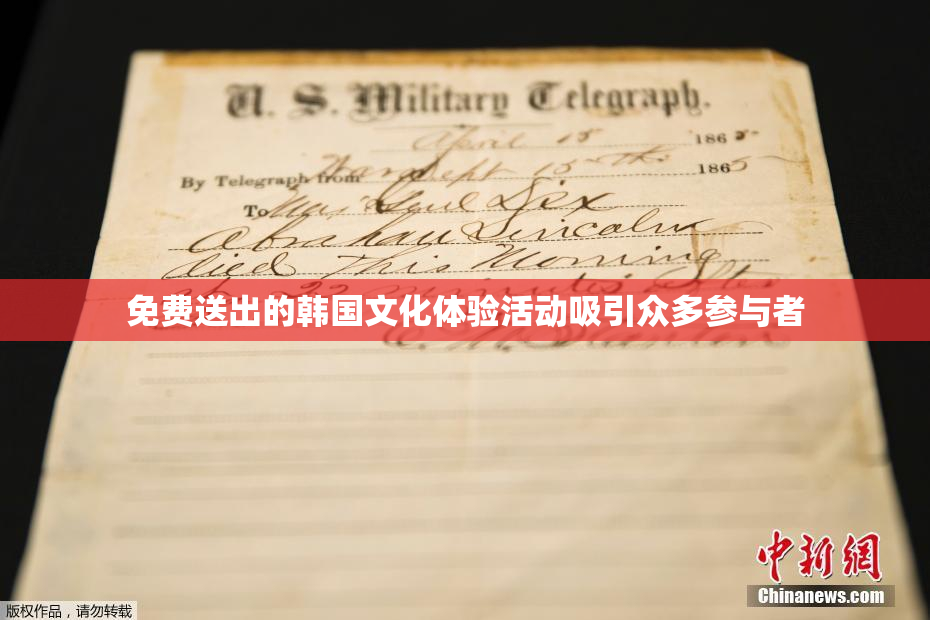 U. S. Military Telegraph.
April 15 1865
By Telegraph from War Dept 15th 1865
To Maj Genl Dix
Abraham Lincoln
died This Morning
at 22 minutes after
免费送出的韩国文化体验活动吸引众多参与者
E. M. Stanton
中新网
Chinanews.com
版权作品，请勿转载